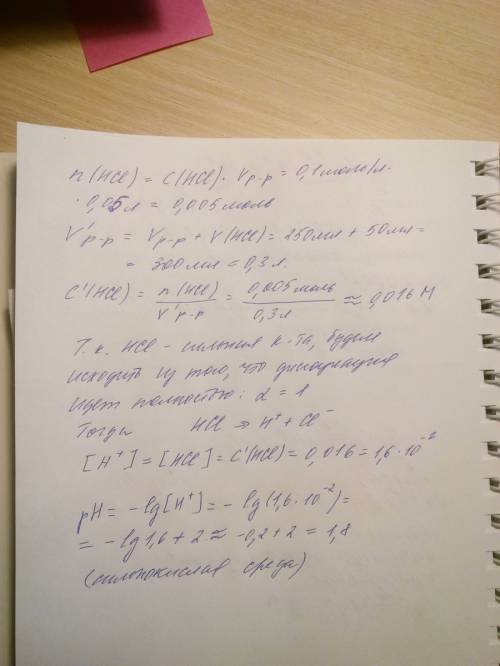 n(HCl) = C(HCl)· Vр-р = 0,1моль/л·
·0,05л = 0,005моль
V'р-р = Vр-р + V(HCl) = 250мл + 50мл =
= 300мл = 0,3л.
C'(HCl) = n(HCl)/V'р-р = 0,005моль/0,3л ≈ 0,016 М
Т.к. HCl - сильная к-та, будем
исходить из того, что диссоциация
идет полностью: α = 1
Тогда HCl ⇒ H⁺ + Cl⁻
[H⁺] = [HCl] = C'(HCl) = 0,016 = 1,6·10⁻²
pH = -lg[H⁺] = -lg(1,6·10⁻²) =
= -lg1,6 + 2 ≈ -0,2 + 2 = 1,8
(сильнокислая среда)